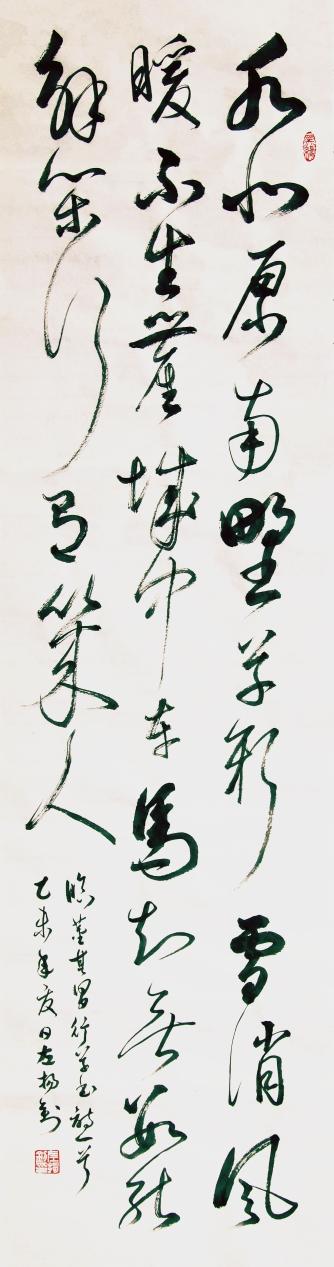 水北原南野草新雪消風
暖不生塵城中車馬知無數能
解閑行有幾人
臨董其昌行草書
乙未年夏日左